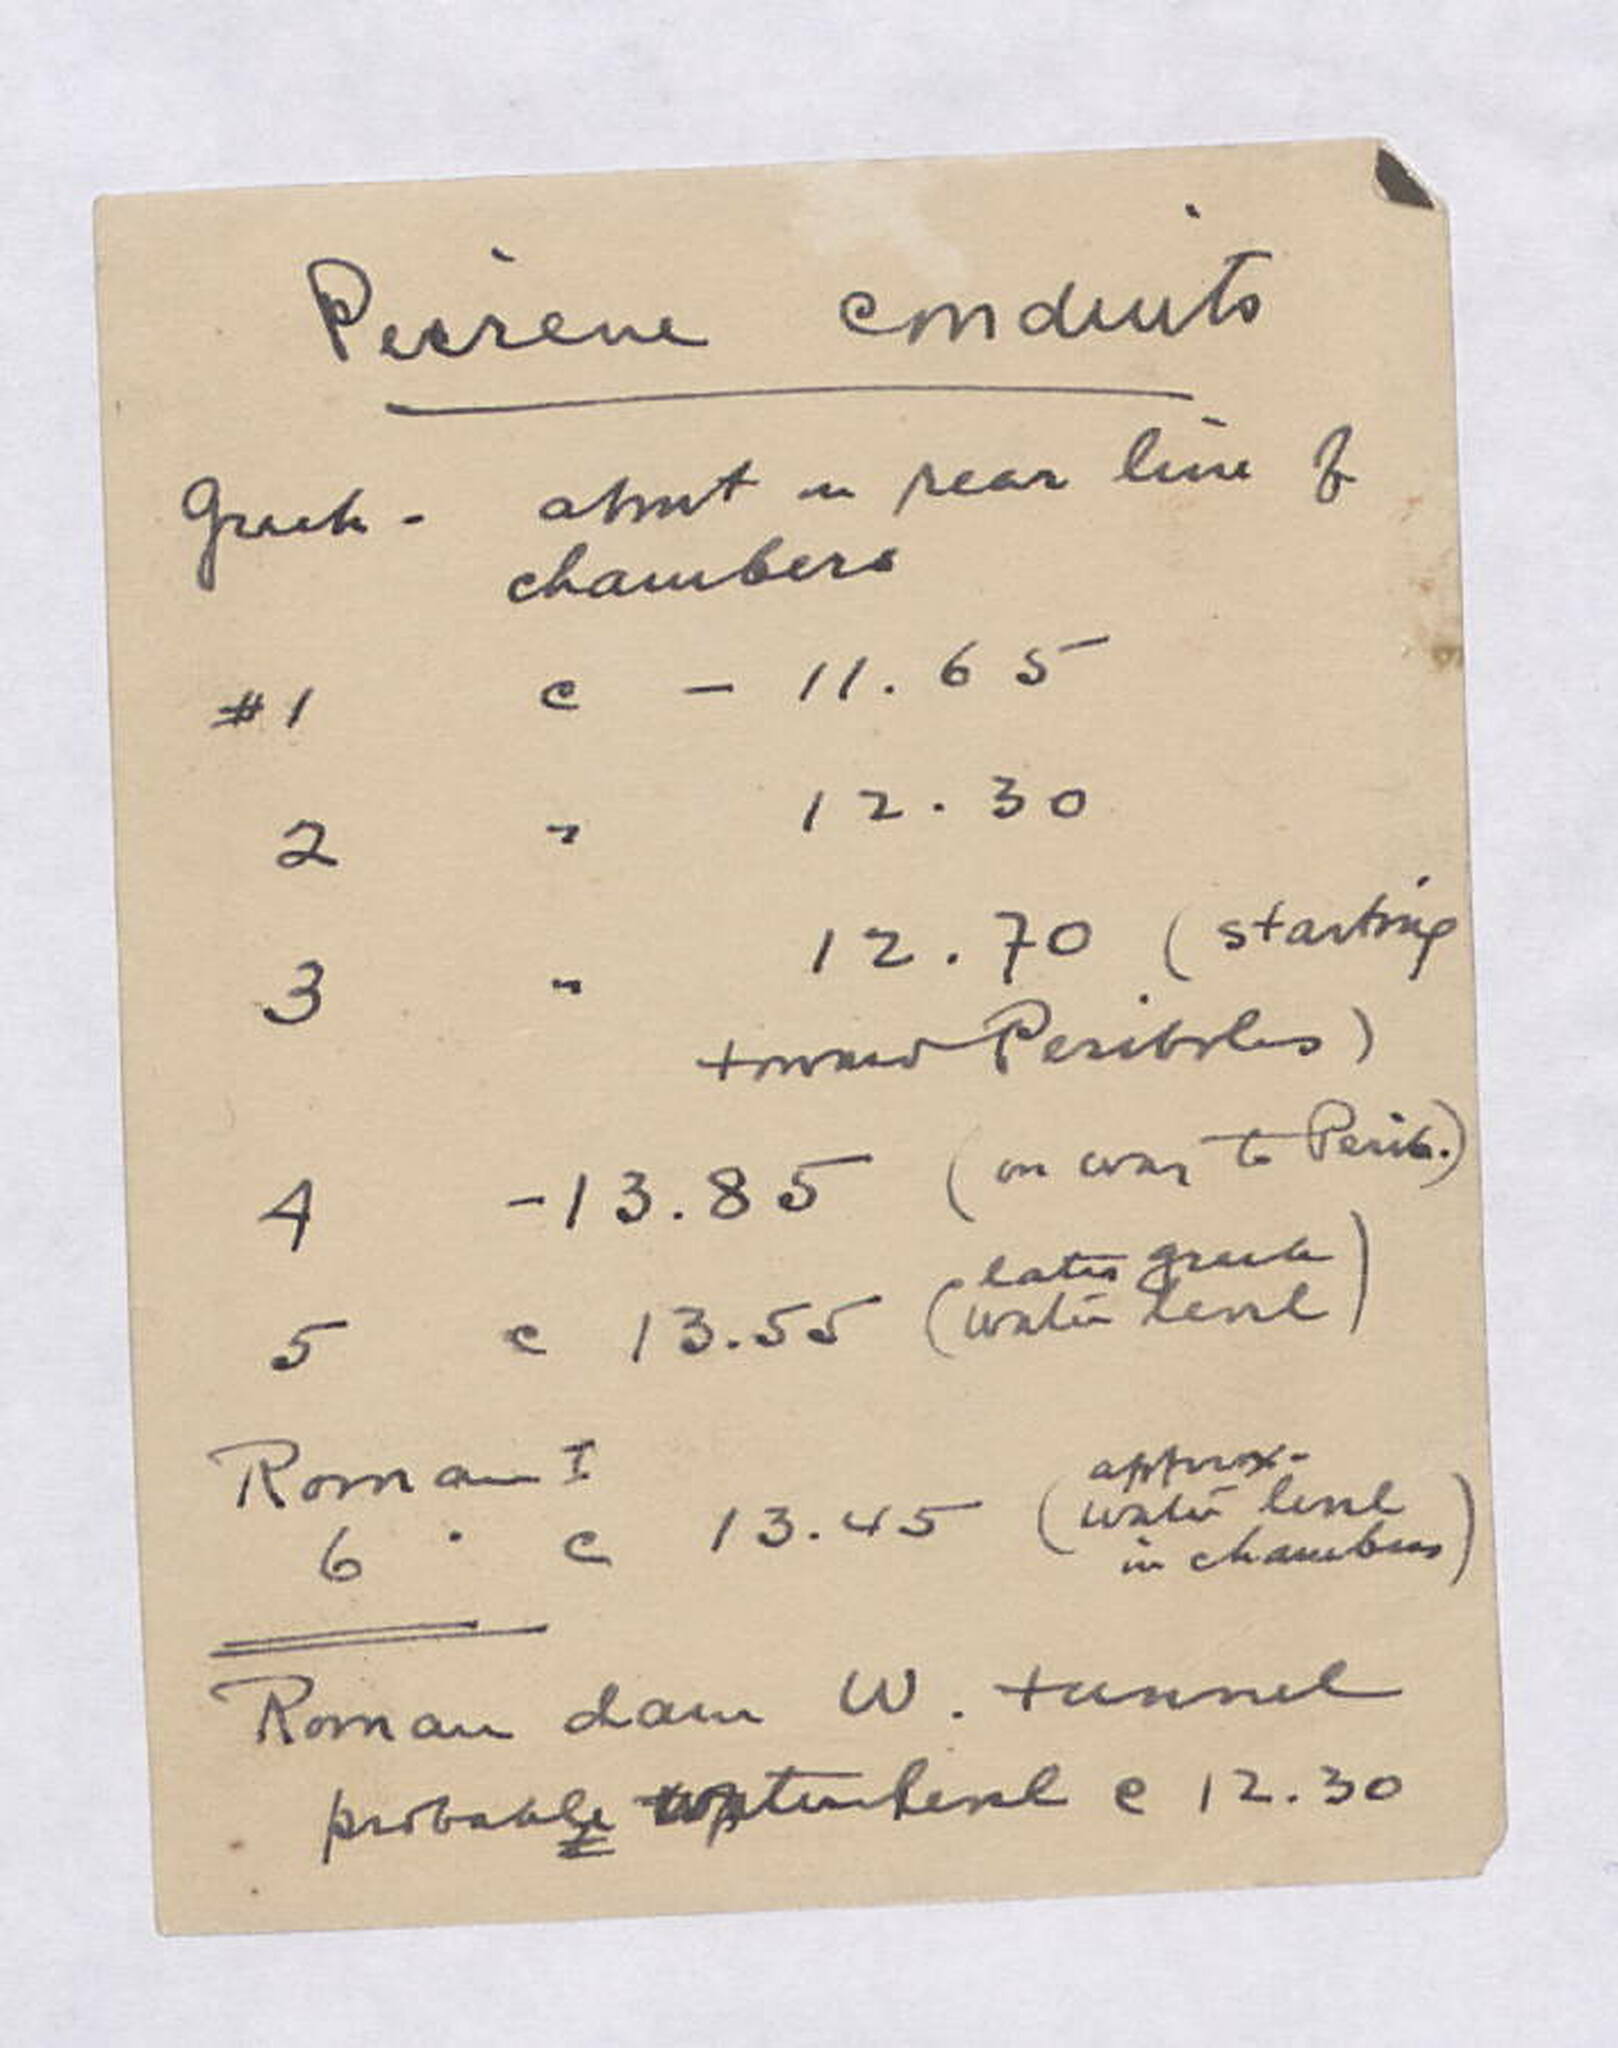 Peirene conduits
Greek - about in rear line of
chambers
#1 c - 11.65
2 " 12.30
3 " 12.70 (starting
toward Peribolos)
4 -13.85 (on way to Perib.)
5 c 13.55 (later greek
water level)
Roman I
6 · c 13.45 (approx-
water level
in chambers)
Roman dam W. tunnel
probable water level c 12.30